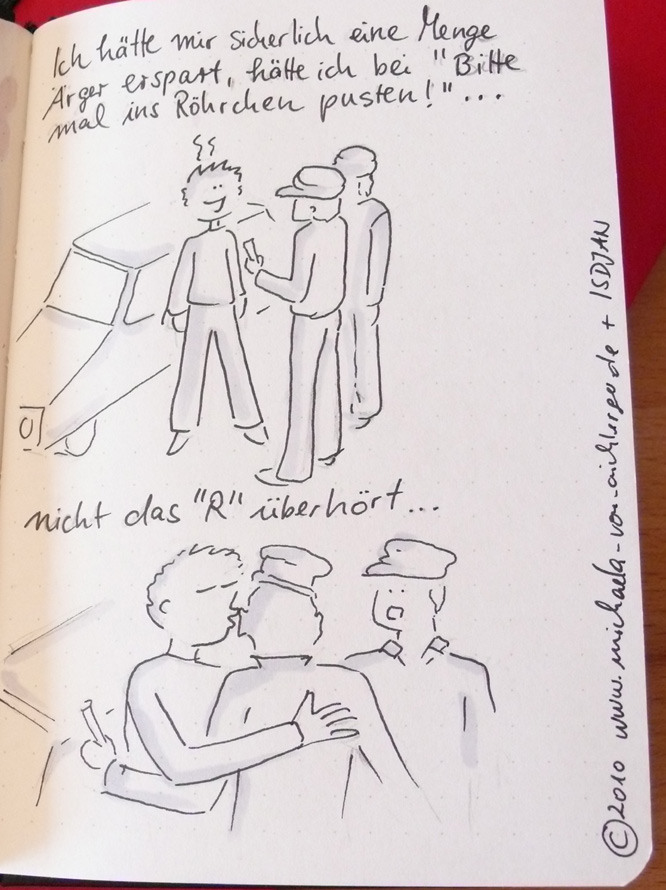 Ich hätte mir sicherlich eine Menge
Ärger erspart, hätte ich bei "Bitte
mal ins Röhrchen pusten!"...
nicht das "R" überhört...
©2010 www.michaela-von-aichberger.de + ISDJAN